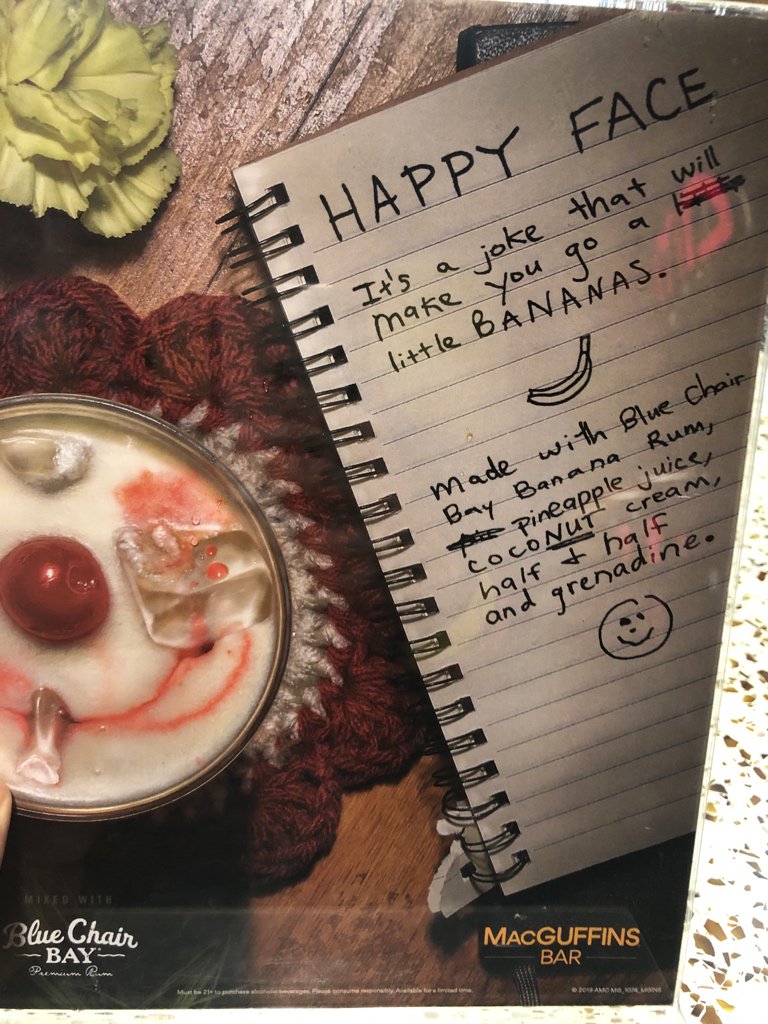 HAPPY FACE
It's a joke that will
make you go a
little BANANAS.
Made with Blue Chair
Bay Banana Rum,
pineapple juice,
cocoNUT cream,
half & half
and grenadine.
MIXED WITH
Blue Chair
BAY
Premium Rum
MACGUFFINS
BAR
Must be 21+ to purchase alcoholic beverages. Please consume responsibly. Available for a limited time.
© 2019 AMC